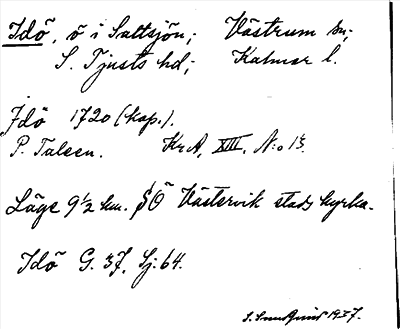 Idö, ö i Saltsjön; Västrum sn;
S. Tjusts hd; Kalmar l.
Idö 1720 (kop.).
P. Taleen. KrA, XIII, N:o 13.
Läge 9½ km. SÖ Västervik stads kyrka.
Idö G. 37, Sj: 64.
1937.